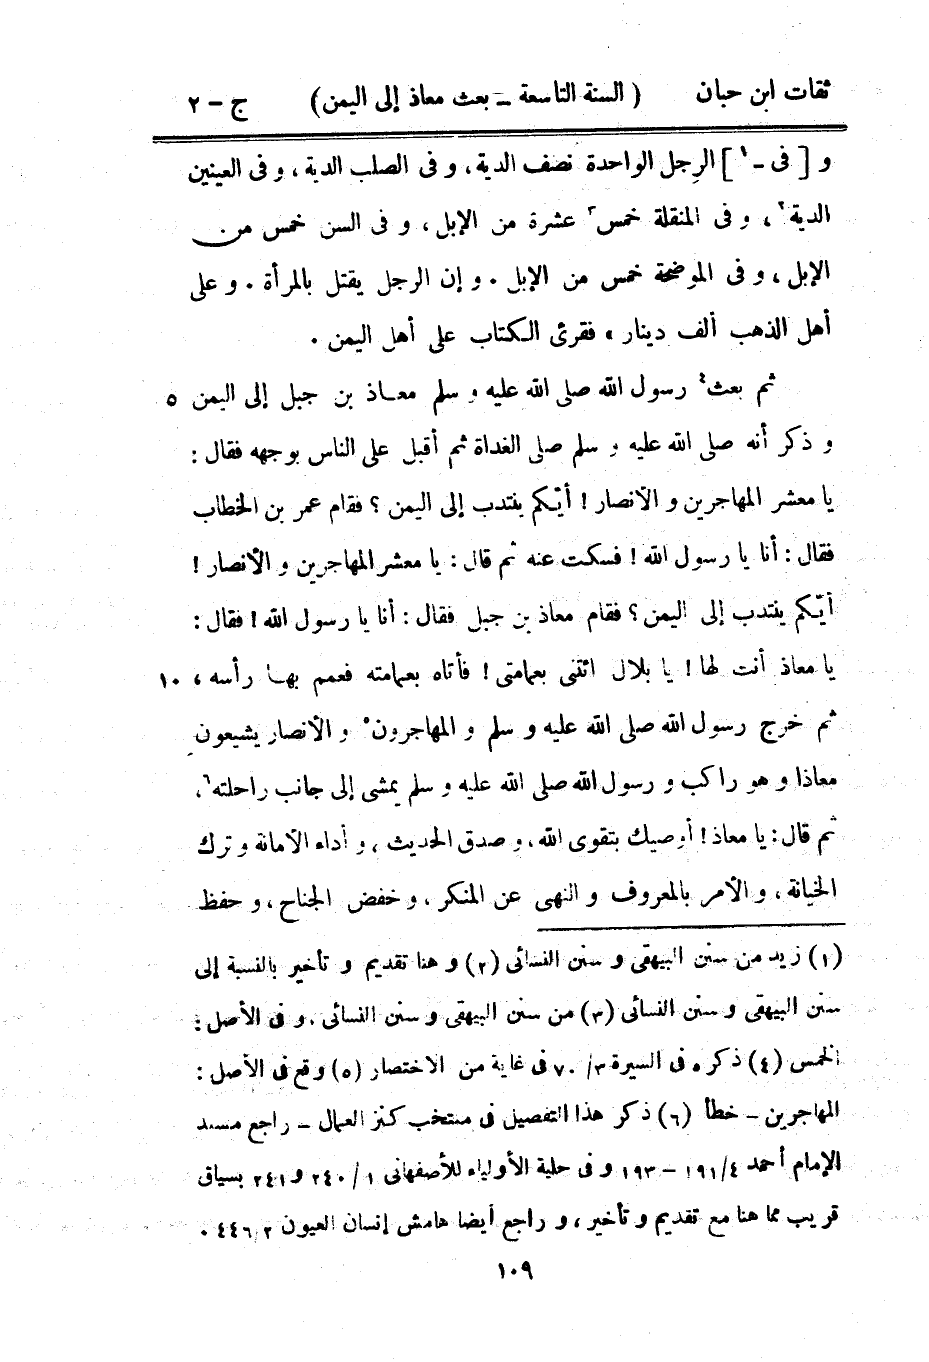 ثقات ابن حبان ( السنة التاسعة ــ بعث معاذ إلى اليمن) ج - ٢
و [ فى ــ ١ ] الرِجل الواحدة نصف الدية ، و فى الصلب الدية ، و فى العينين
الدية٢ ، و فى المنقلة خمس٣ عشرة من الإبل ، و فى السن خمس من
الإبل ، و فى الموضحة خمس من الإبل . و إن الرجل يقتل بالمرأة . و على
أهل الذهب ألف دينار ، فقرئ الكتاب على أهل اليمن .
ثم بعث٤ رسول الله صلى الله عليه و سلم معاذ بن جبل إلى اليمن ٥
و ذكر أنه صلى الله عليه و سلم صلى الغداة ثم أقبل على الناس بوجهه فقال :
يا معشر المهاجرين و الأنصار ! أيّكم ينتدب إلى اليمن ؟ فقام عمر بن الخطاب
فقال : أنا يا رسول الله ! فسكت عنه ثم قال : يا معشر المهاجرين و الأنصار !
أيّكم ينتدب إلى اليمن ؟ فقام معاذ بن جبل فقال : أنا يا رسول الله ! فقال :
يا معاذ أنت لها ! يا بلال ائتنى بعمامتى ! فأتاه بعمامته فعمم بها رأسه ، ١٠
ثم خرج رسول الله صلى الله عليه و سلم و المهاجرون٥ و الأنصار يشيعون
معاذا و هو راكب و رسول الله صلى الله عليه و سلم يمشى إلى جانب راحلته٦ ،
ثم قال : يا معاذ ! أوصيك بتقوى الله ، و صدق الحديث ، و أداء الأمانة و ترك
الخيانة ، و الأمر بالمعروف و النهى عن المنكر ، و خفض الجناح ، و حفظ
(١) زيد من سنن البيهقى و سنن النسائى (٢) و هنا تقديم و تأخير بالنسبة إلى
سنن البيهقى و سنن النسائى (٣) من سنن البيهقى و سنن النسائى . و فى الأصل :
الخمس (٤) ذكره فى السيرة ٣/ ٧٠ فى غاية من الاختصار (٥) وقع فى الأصل :
المهاجرين ــ خطأ (٦) ذكر هذا التفصيل فى منتخب كنز العمال ــ راجع مسند
الإمام أحمد ٤/ ١٩١ - ١٩٣ و فى حلية الأولياء للأصفهانى ١/ ٢٤٠ و ٢٤١ بسياق
قريب مما هنا مع تقديم و تأخير ، و راجع أيضا هامش إنسان العيون ٢/ ٤٤٦ .
١٠٩